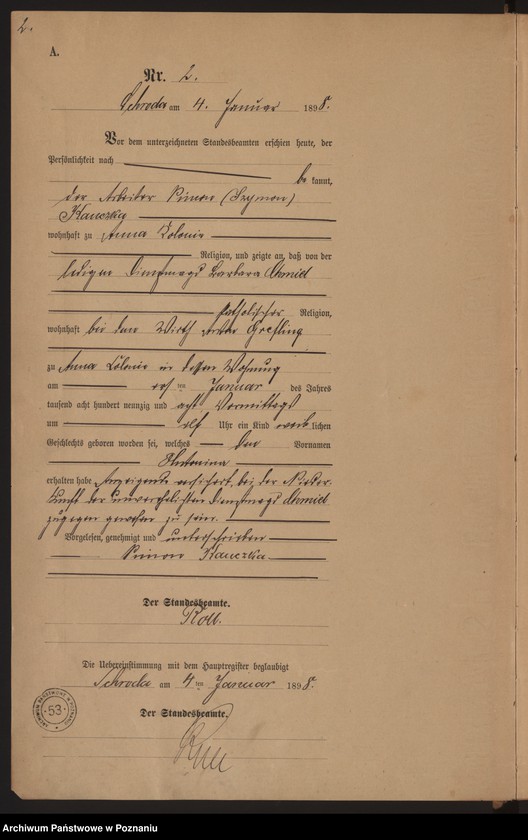 2.
A.
Nr. 2.
Schroda am 4. Januar 1898.
Vor dem unterzeichneten Standesbeamten erschien heute, der
Persönlichkeit nach
be kannt,
der Arbeiter Simon (Szymon)
Kaeczka
wohnhaft zu Anna Kolonie
Religion, und zeigte an, daß von der
ledigen Dienstmagd Barbara
katholischer Religion,
wohnhaft bei dem Wirth Grefling
zu Anna Colonie in dessen Wohnung
am ten Januar des Jahres
tausend acht hundert neunzig und acht Vormittags
um elf Uhr ein Kind weiblichen
Geschlechts geboren worden sei, welches den Vornamen
Antonina
erhalten habe Anzeigender versichert, bei der Nieder-
kunft der unverehelichten Dienstmagd
zugegen gewesen zu sein.
Vorgelesen, genehmigt und unterschrieben
Simon Kaeczka
Der Standesbeamte.
Roll.
Die Uebereinstimmung mit dem Hauptregister beglaubigt
Schroda am 4ten Januar 1898.
Der Standesbeamte.
ARCHIWUM PAŃSTWOWE W POZNANIU
53
Archiwum Państwowe w Poznaniu